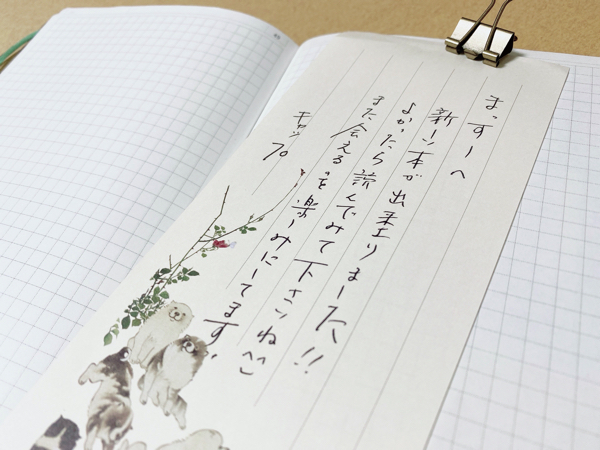 まっすーへ
新しい本が出来上りました!!
よかったら読んでみて下さいね^^
また会えるを楽しみにしてます。
キャップ